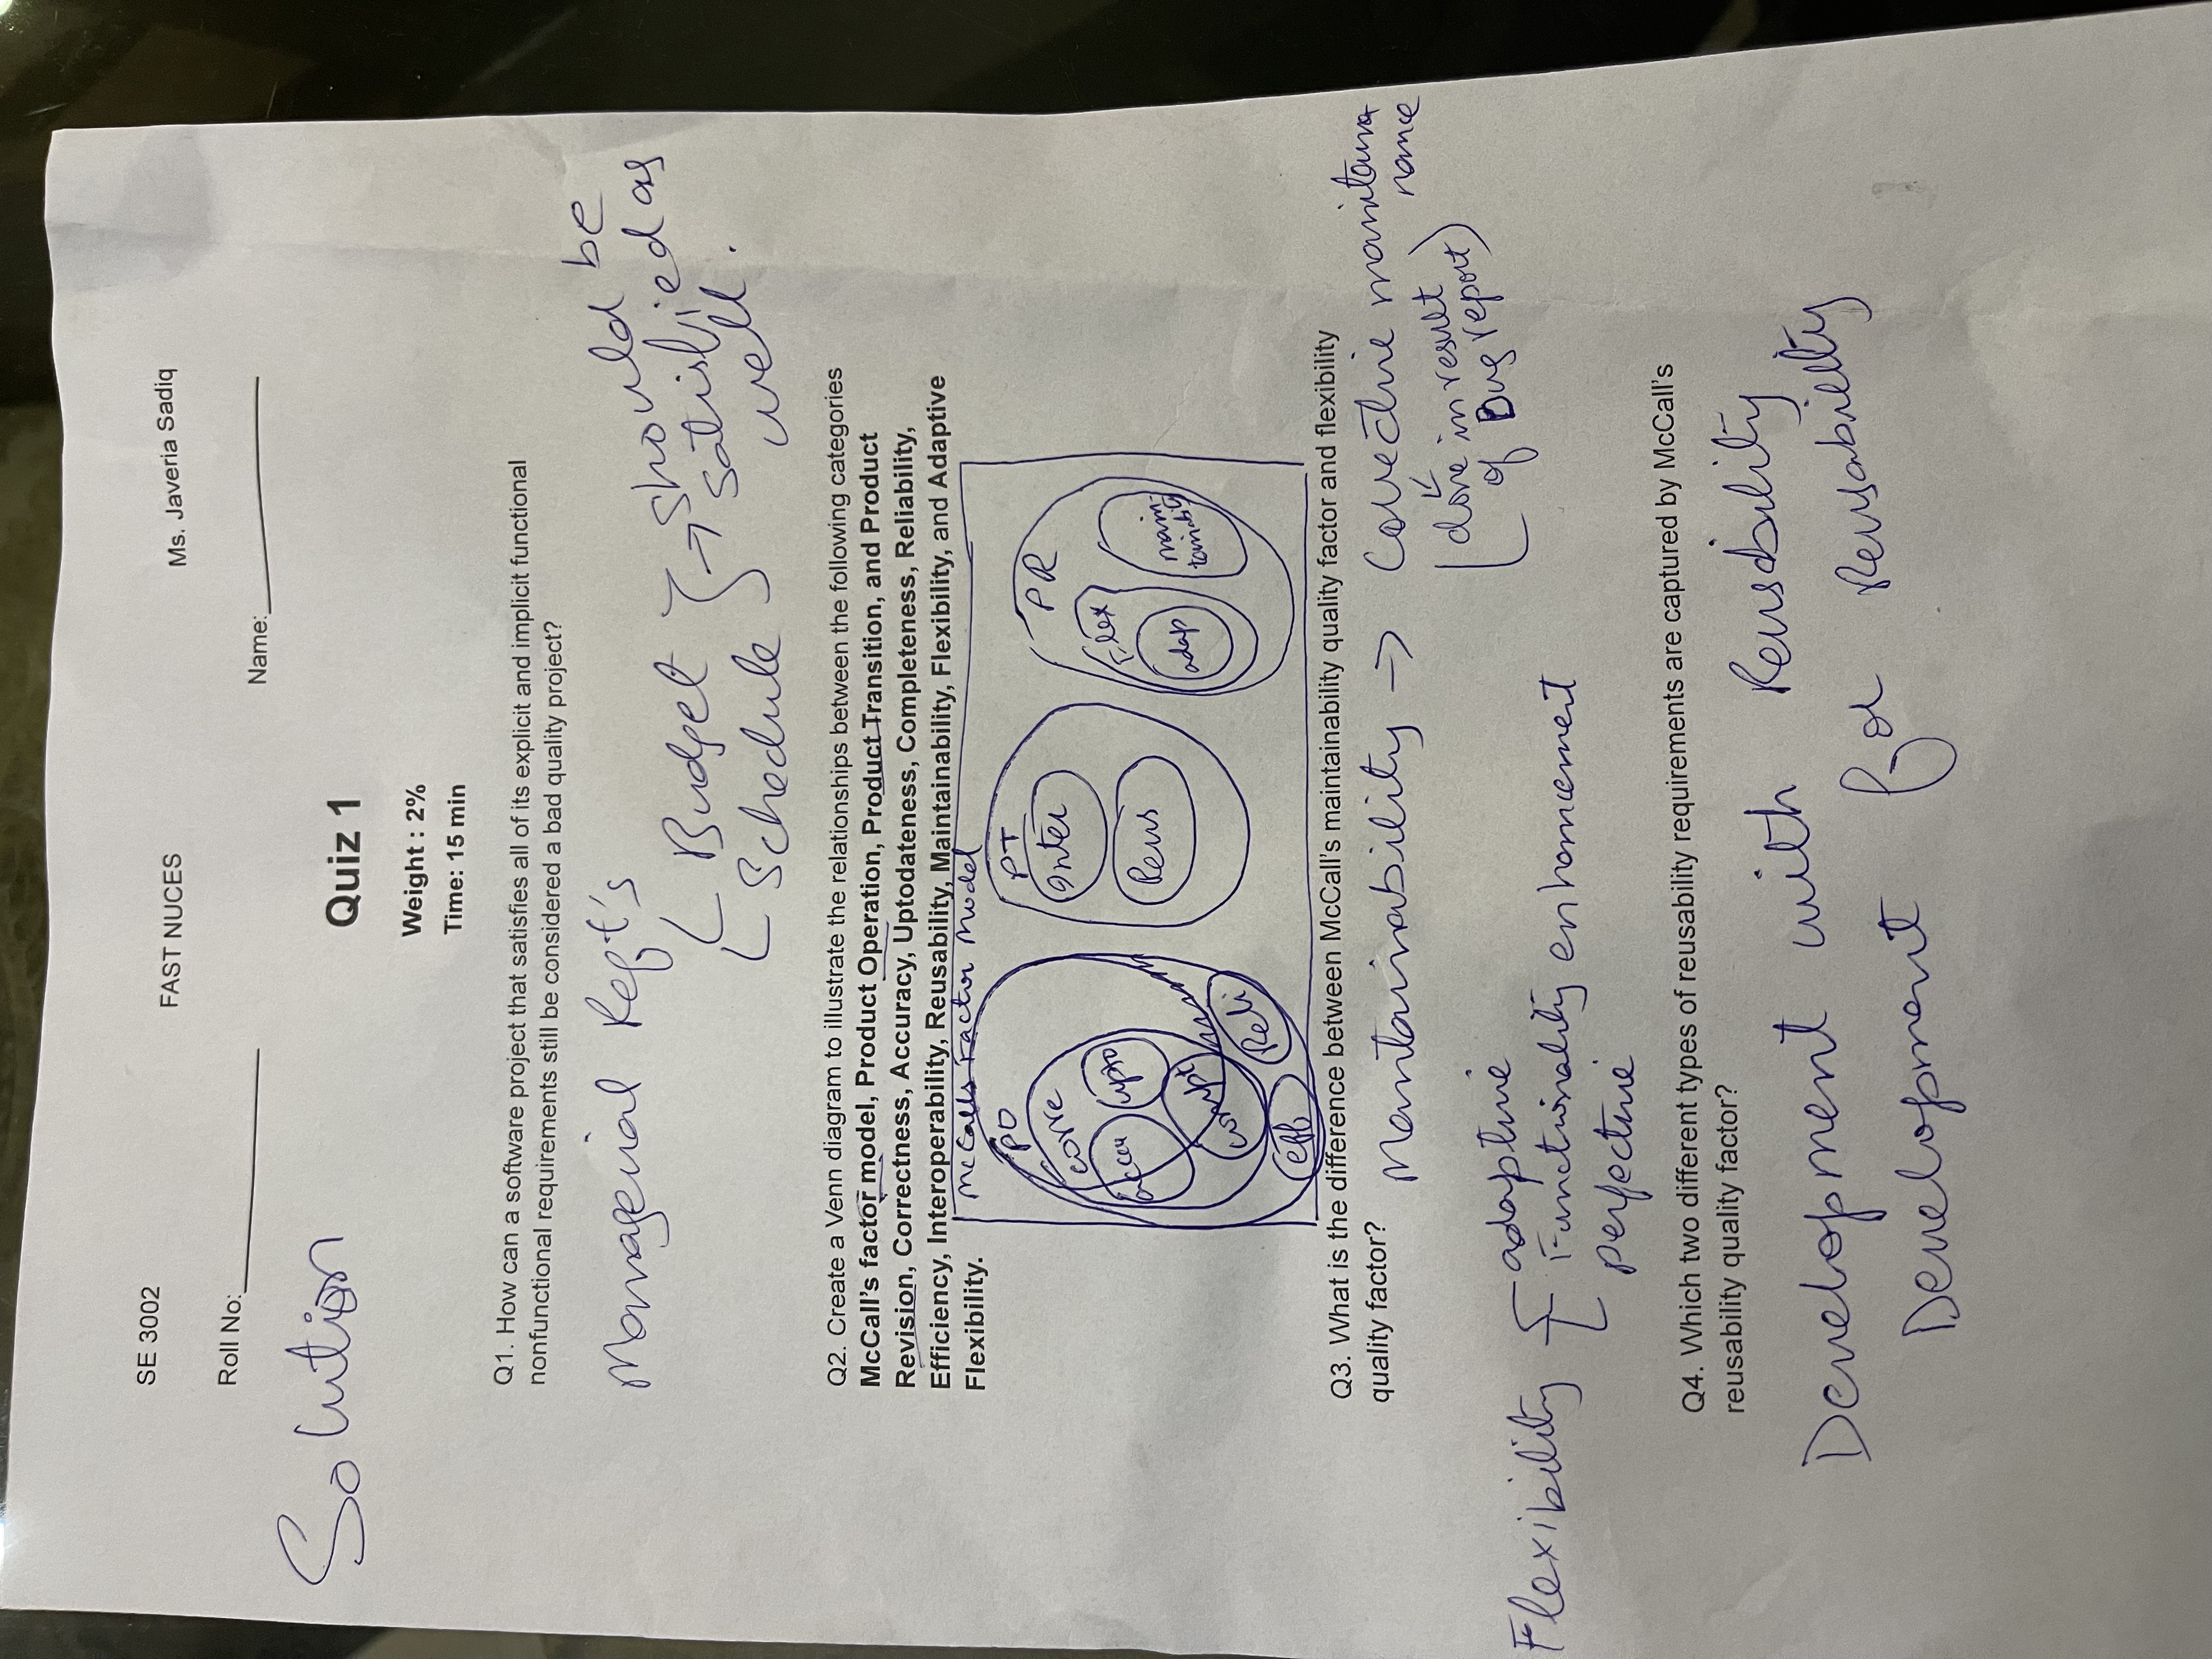 SE 3002
FAST NUCES
Ms. Javeria Sadiq
Roll No:
Name:
Solution
Quiz 1
Weight : 2%
Time: 15 min
Q1. How can a software project that satisfies all of its explicit and implicit functional
nonfunctional requirements still be considered a bad quality project?
Managerial Reqt's
Budget
Schedule
→ should be
satisfied as
well.
Q2. Create a Venn diagram to illustrate the relationships between the following categories
McCall's factor model, Product Operation, Product Transition, and Product
Revision, Correctness, Accuracy, Uptodateness, Completeness, Reliability,
Efficiency, Interoperability, Reusability, Maintainability, Flexibility, and Adaptive
Flexibility.
McCalls Factor Model
PO
corre
accu
upto
compt
eff
Reli
PT
Inter
Reus
PR
Flex
adap
main-
tainability
Q3. What is the difference between McCall's maintainability quality factor and flexibility
quality factor?
Maintainability → Corrective
(done in result
of Bug report)
Flexibility
adaptive
Functionality enhancement
perfective
Q4. Which two different types of reusability requirements are captured by McCall's
reusability quality factor?
Development with Reusability
Development for Reusability